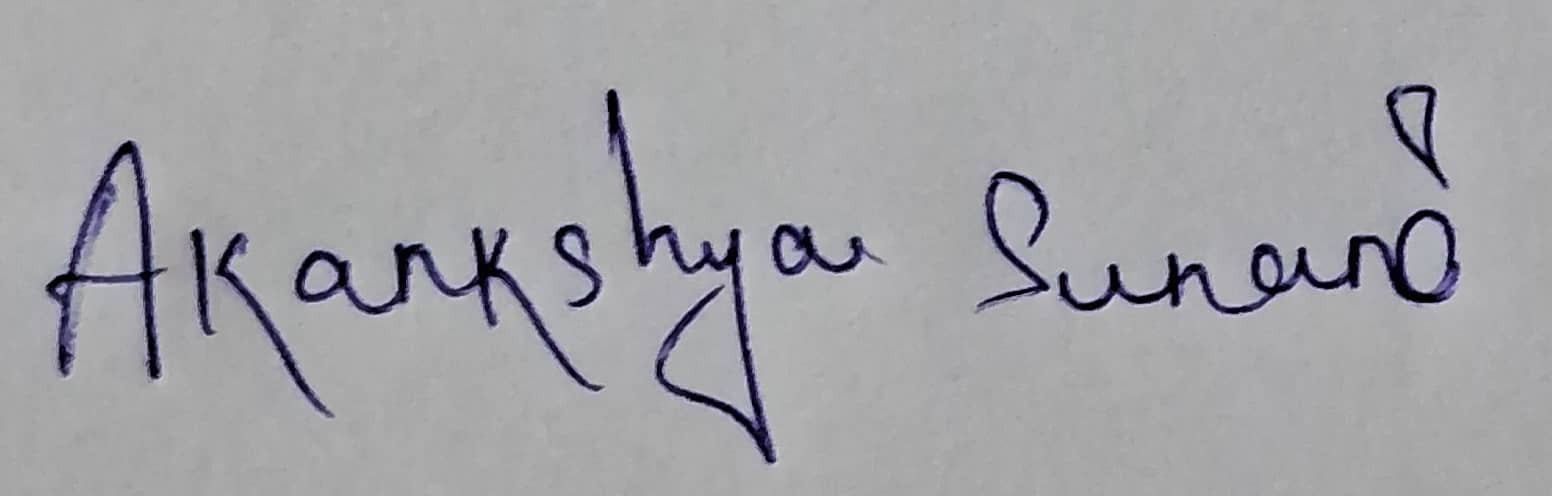 Akankshya Sunani